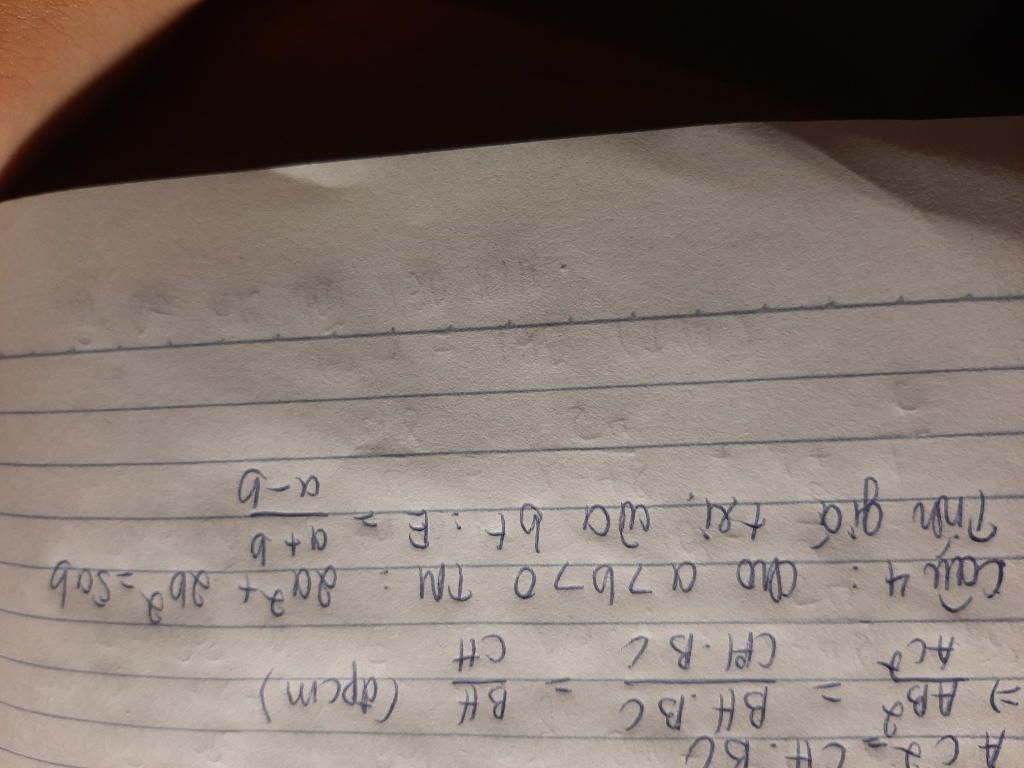 AC² = CH.BC
=) AB²/AC² = BH.BC/CH.BC = BH/CH (đpcm)
Câu 4 : Cho a>b>0 TM : 2a² + 2b² = 5ab
Tính giá trị của bt : E = a+b/a-b